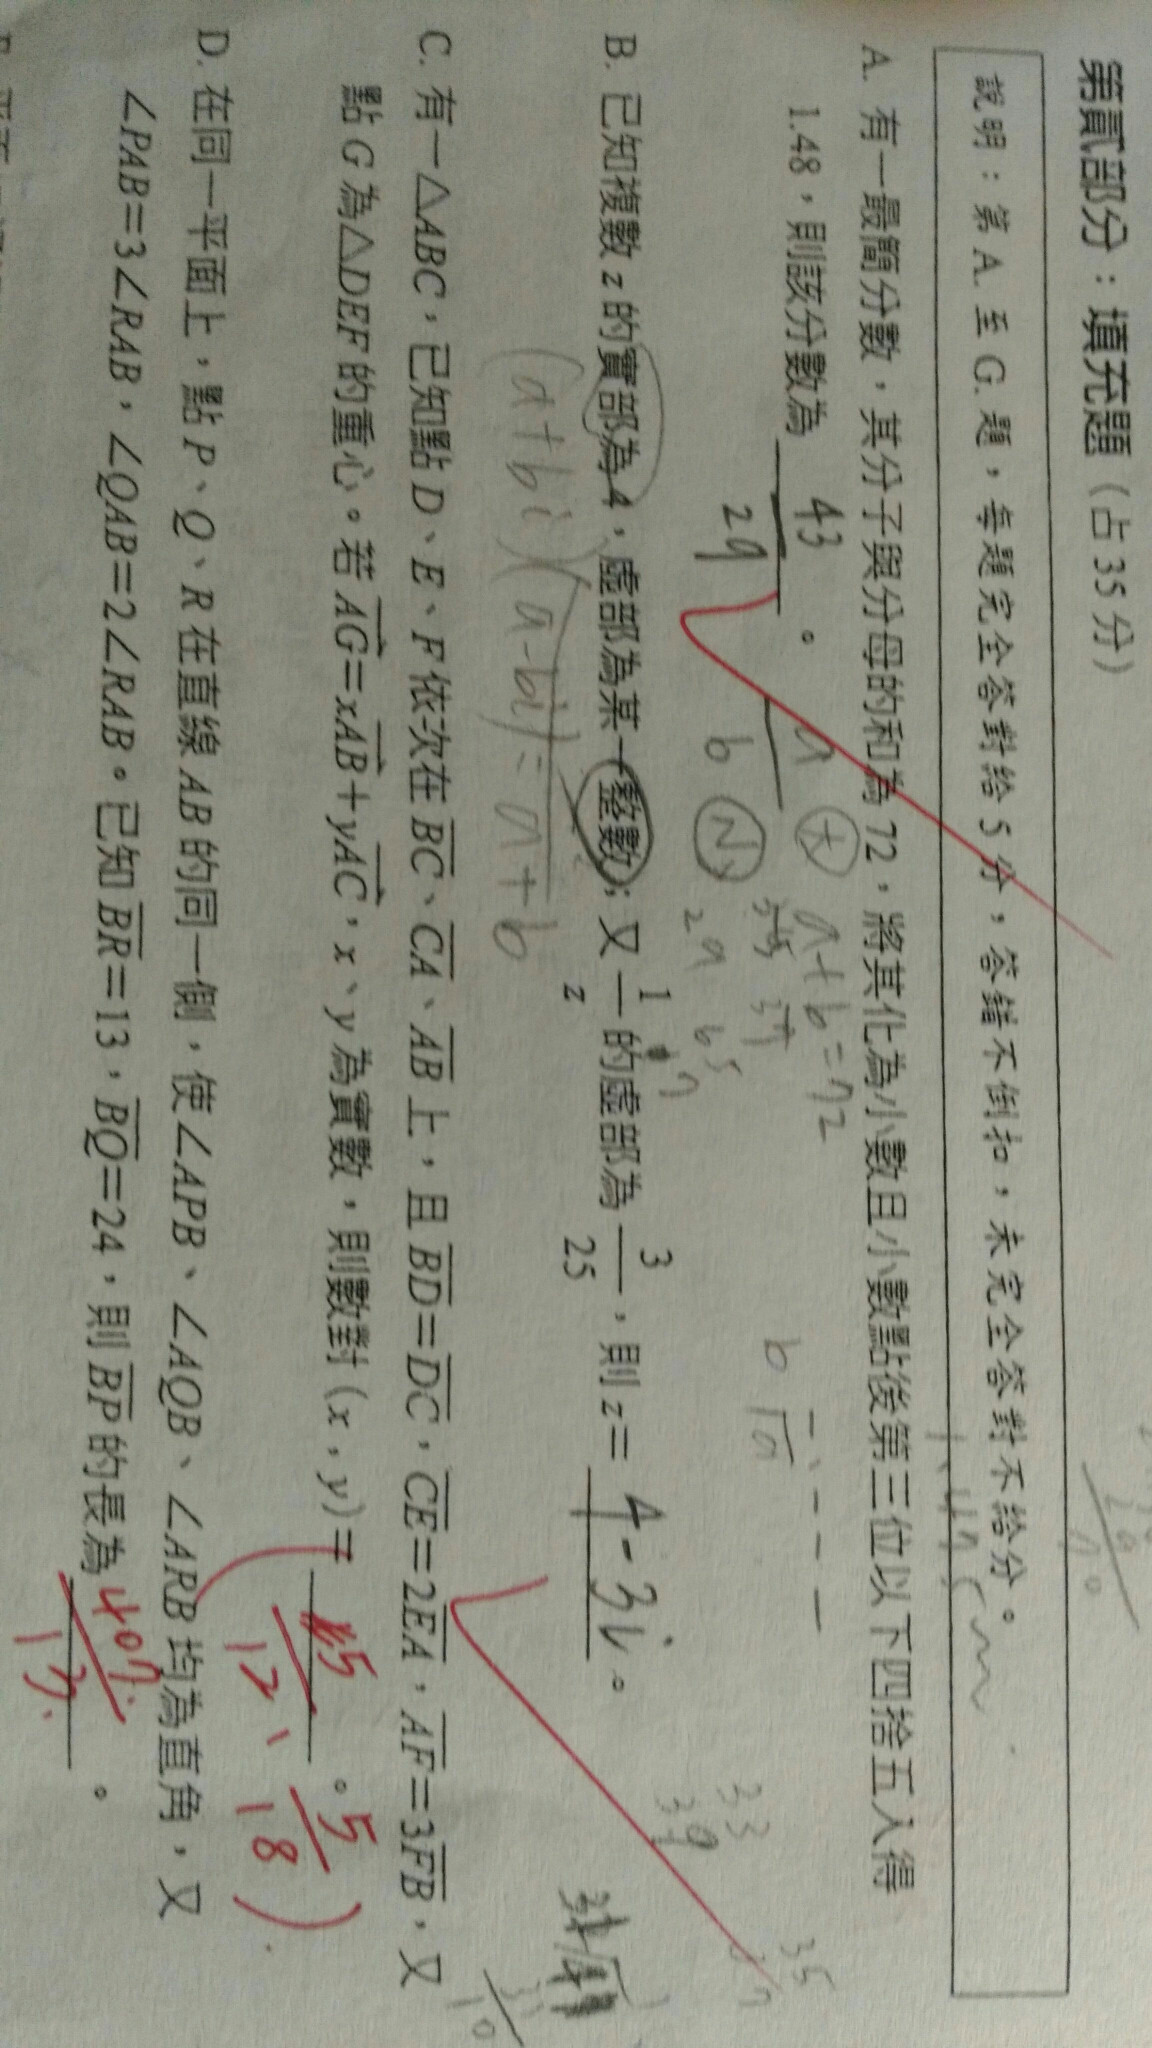 第貳部分：填充題（占35分）
說明：第A.至G.題，每題完全答對給5分，答錯不倒扣，未完全答對不給分。
A. 有一最簡分數，其分子與分母的和為72，將其化為小數且小數點後第三位以下四捨五入得
1.48，則該分數為 43/29 。
a/b
a+b=72
B. 已知複數 z 的實部為4，虛部為某一整數；又 1/z 的虛部為 3/25，則 z= 4-3i 。
(a+bi)(a-bi)=a+b
C. 有一△ABC，已知點 D、E、F 依次在 BC、CA、AB 上，且 BD=DC，CE=2EA，AF=3FB，又
點 G 為△DEF 的重心。若 AG=xAB+yAC，x、y 為實數，則數對 (x，y)= 。
5/12、5/18)
D. 在同一平面上，點 P、Q、R 在直線 AB 的同一側，使∠APB、∠AQB、∠ARB 均為直角，又
∠PAB=3∠RAB，∠QAB=2∠RAB。已知 BR=13，BQ=24，則 BP 的長為 407/13 。